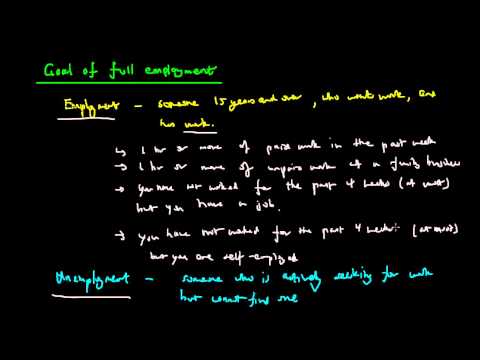 Goal of full employment
Employment - someone 15 years and over, who wants work, and
has work.
↳ 1 hr or more of paid work in the past week
↳ 1 hr or more of unpaid work at a family business
→ you have not worked for the past 4 weeks (at most)
but you have a job.
→ you have not worked for the past 4 weeks (at most)
but you are self employed
Unemployment - someone who is actively seeking for work
but cannot find one